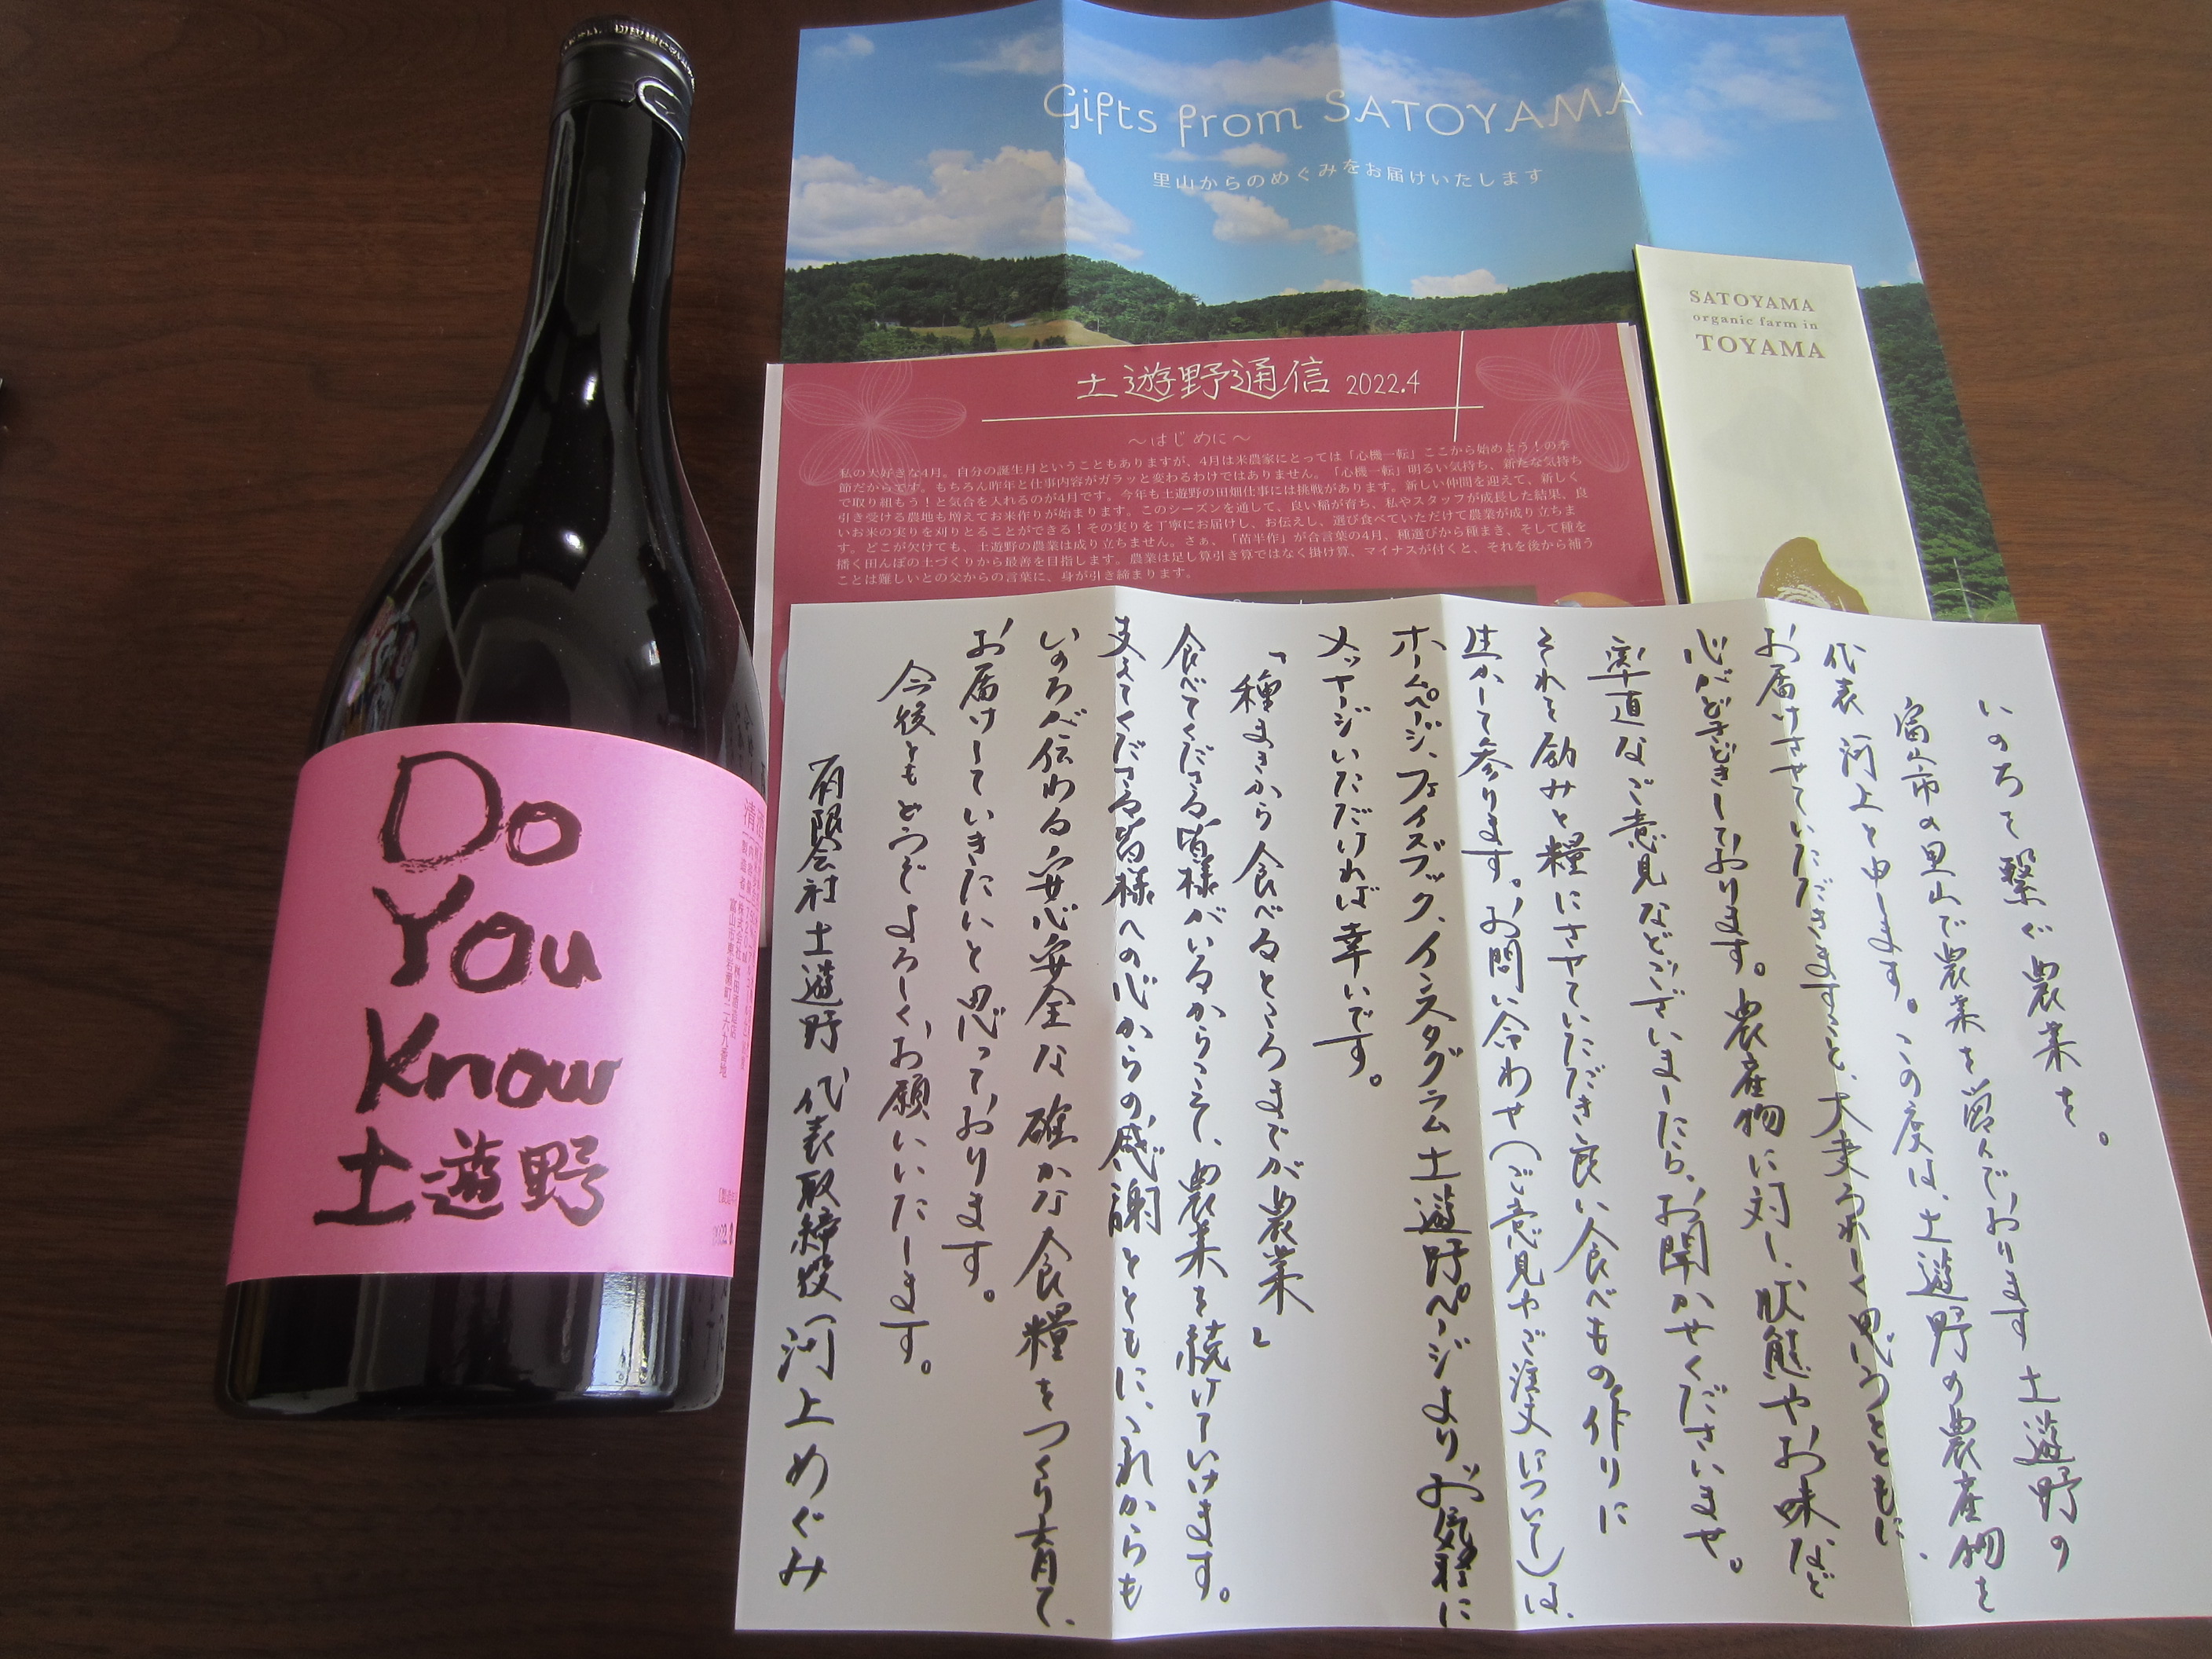 Do
You
Know
土遊野
清酒
Gifts from SATOYAMA
里山からのめぐみをお届けいたします
SATOYAMA
organic farm in
TOYAMA
土遊野通信 2022.4
～はじめに～
私の大好きな4月。自分の誕生月ということもありますが、4月は米農家にとっては「心機一転」ここから始めよう！の季
節だからです。もちろん昨年と仕事内容がガラッと変わるわけではありません。「心機一転」明るい気持ち、新たな気持ち
で取り組もう！と気合を入れるのが4月です。今年も土遊野の田畑仕事には挑戦があります。新しい仲間を迎えて、新しく
引き受ける農地も増えてお米作りが始まります。このシーズンを通して、良い稲が育ち、私やスタッフが成長した結果、良
いお米の実りを刈りとることができる！その実りを丁寧にお届けし、お伝えし、選び食べていただけて農業が成り立ちま
す。どこが欠けても、土遊野の農業は成り立ちません。さぁ、「苗半作」が合言葉の4月、種選びから種まき、そして種を
播く田んぼの土づくりから最善を目指します。農業は足し算引き算ではなく掛け算、マイナスが付くと、それを後から補う
ことは難しいとの父からの言葉に、身が引き締まります。
いのちを繋ぐ農業を。
富山市の里山で農業を営んでおります土遊野の
代表 河上と申します。この度は、土遊野の農産物を
お届けさせていただきますこと、大変うれしく思うとともに、
心がどきどきしております。農産物に対し、状態やお味など
率直なご意見などございましたら、お聞かせくださいませ。
それを励みと糧にさせていただき良い食べもの作りに
生かして参ります。お問い合わせ（ご意見やご注文について）は、
ホームページ、フェイスブック、インスタグラム土遊野ページよりお気軽に
メッセージいただければ幸いです。
「種まきから食べるところまでが農業」
食べてくださる皆様がいるからこそ、農業を続けていけます。
支えてくださる皆様への心からの感謝とともに、これからも
いのちが伝わる安心安全な確かな食糧をつくり育て、
お届けしていきたいと思っております。
今後ともどうぞよろしくお願いいたします。
有限会社土遊野 代表取締役 河上めぐみ